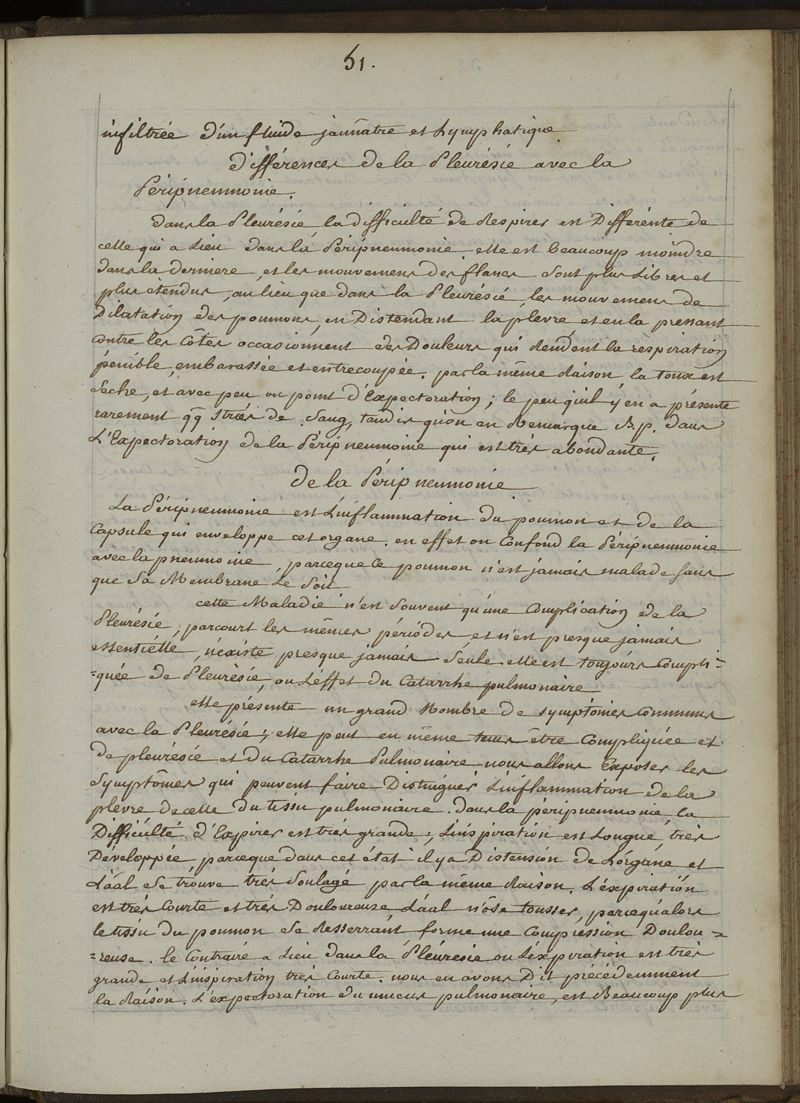 51.
infiltrée d'un fluide jaunâtre et Lymphatique
différences de la Pleurésie avec la
Péripneumonie.
dans la Pleurésie la difficulté de Respirer est Différente de
celle qui a Lieu dans la Péripneumonie. elle est beaucoup moindre
dans la derniere, et les mouvemens des flancs sont plus Libres et
plus étendus, au lieu que dans la Pleurésie, les mouvemens de
Dilatation des poumons, en Distendant la plevre et en la pressant
contre les Côtes occasionnent des Douleurs qui Rendent la respiration
pénible, embarassée et entrecoupée. par la même Raison la toux est
Seche, et avec peu ou point d'Expectoration; le peu qu'il y en a présente
rarement qq stries de Sang, tandis qu'on en Remarque B.p. dans
L'Expectoration de la Péripneumonie qui est très abondante.
De la Péripneumonie
La Péripneumonie est L'inflammation du poumon et de la
Capsule qui enveloppe cet organe. en effet on Confond la Péripneumonie
avec la pneumonie, parceque le poumon n'est jamais malade sans
que Sa Membrane Le Soit
cette Maladie n'est Souvent qu'une Complication de la
Pleurésie, parcourt les mêmes périodes et n'est presque jamais
essentiélle, n'éxiste presque jamais Seule. elle est toujours Compli=
=quée de Pleurésie, ou L'éffet du Catarrhe pulmonaire
elle présente un grand Nombre de symptômes Communs
avec la Pleurésie; elle peut en même tems être Compliquée et
de pleurésie et du Catarrhe Pulmonaire nous allons Exposer les
Symptômes qui peuvent faire Distinguer L'inflammation de la
plevre de celle du tissu pulmonaire. dans la péripneumonie, la
Difficulté d'Expirer est très grande; L'inspiration est Longue, très
Developpée, parceque dans cet état il y a Distension de L'orgâne et
L'áal Se trouve très Soulagé par la même Raison. L'éxpiration
est très Courte et très Douloureuse L'áal n'ôse tousser, parcequ'alors
le tissu du poumon Se Resserrant forme une Compression Doulou=
=reuse. le Contraire a Lieu dans la Pleurésie ou L'éxpiration est très
grande et L'inspiration très Courte. nous en avons Dit précédemment
la Raison. L'expectoration du mucus pulmonaire, est Beaucoup plus